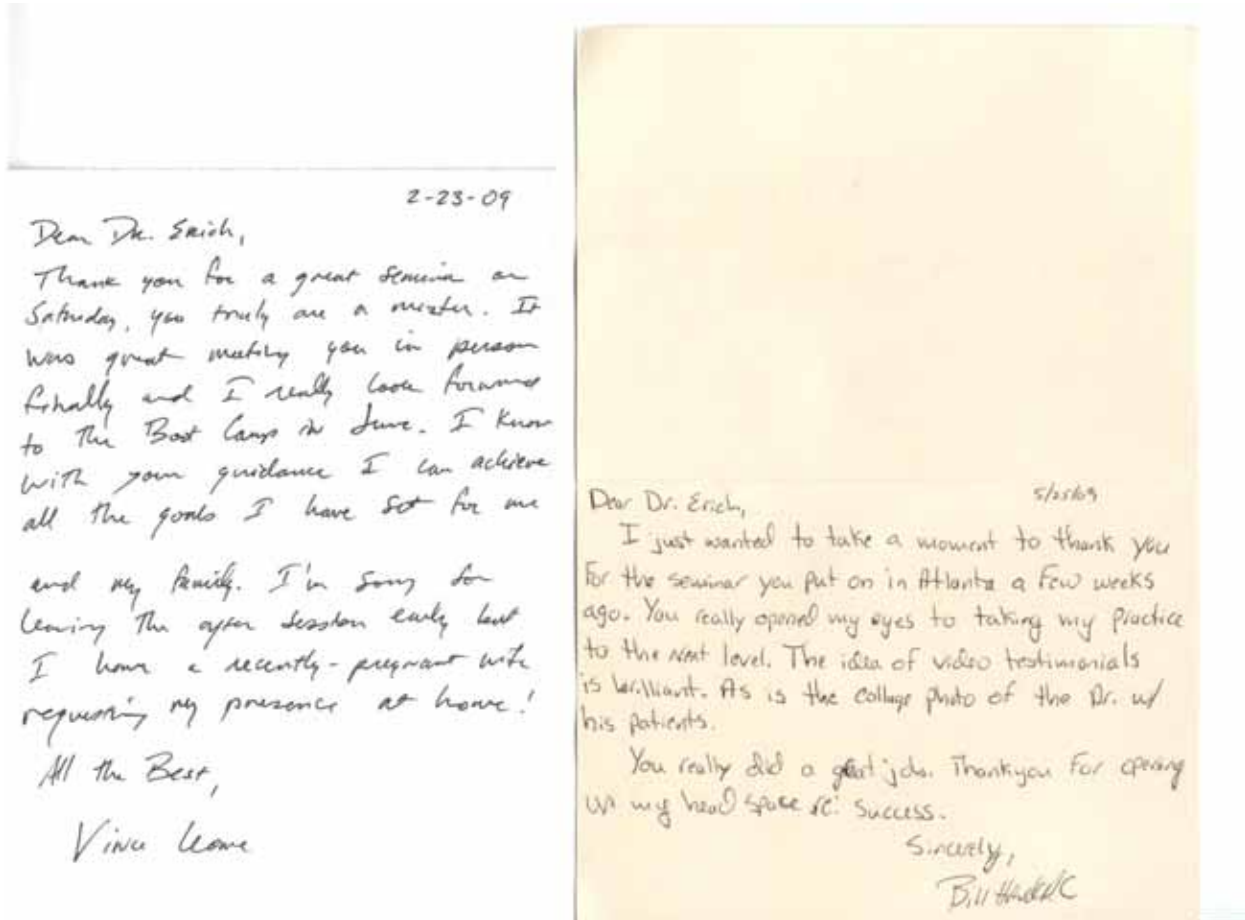 2-23-09
Dear Dr. Erich,
Thank you for a great seminar on
Saturday, you truly are a master. It
was great meeting you in person
finally and I really look forward
to the Boot Camp in June. I know
with your guidance I can achieve
all the goals I have set for me
and my family. I'm sorry for
leaving the after session early but
I have a recently-pregnant wife
requesting my presence at home!
All the Best,
Vince
5/25/09
Dear Dr. Erich,
I just wanted to take a moment to thank you
for the seminar you put on in Atlanta a few weeks
ago. You really opened my eyes to taking my practice
to the next level. The idea of video testimonials
is brilliant. As is the collage photo of the Dr. w/
his patients.
You really did a great job. Thankyou for opening
up my head space re: success.
Sincerely,
Bill